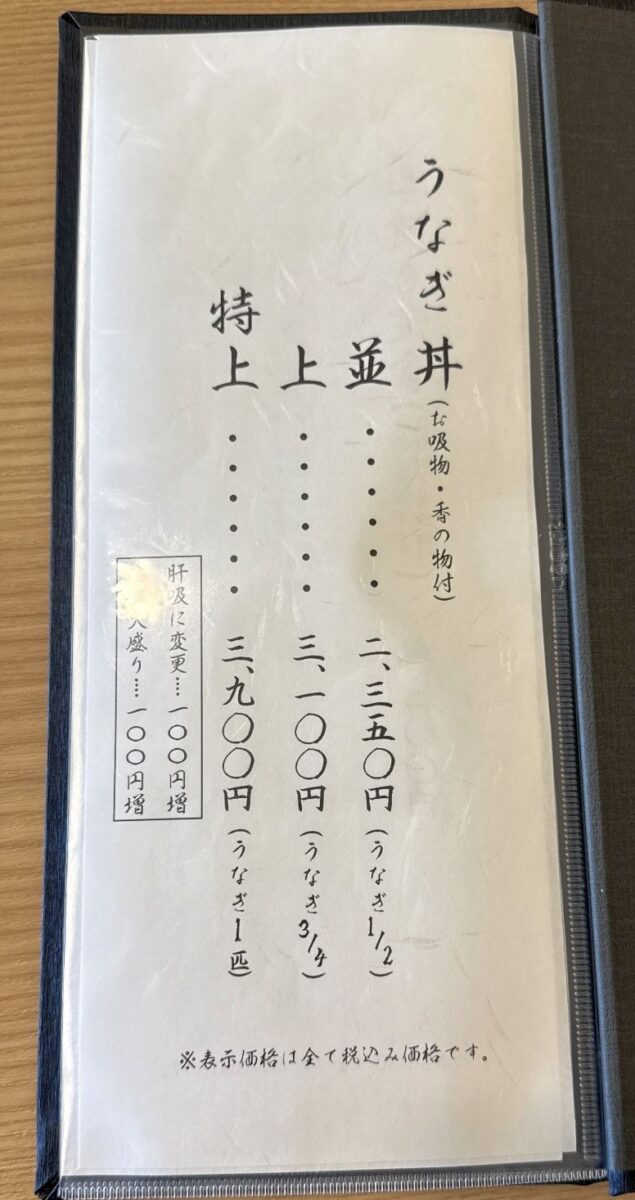 うなぎ丼(お吸物・香の物付)
並・・・・・・二、三五〇円(うなぎ1/2)
上・・・・・・三、一〇〇円(うなぎ3/4)
特上・・・・・・三、九〇〇円(うなぎ1匹)
肝吸に変更……一〇〇円増
大盛り……一〇〇円増
※表示価格は全て税込み価格です。